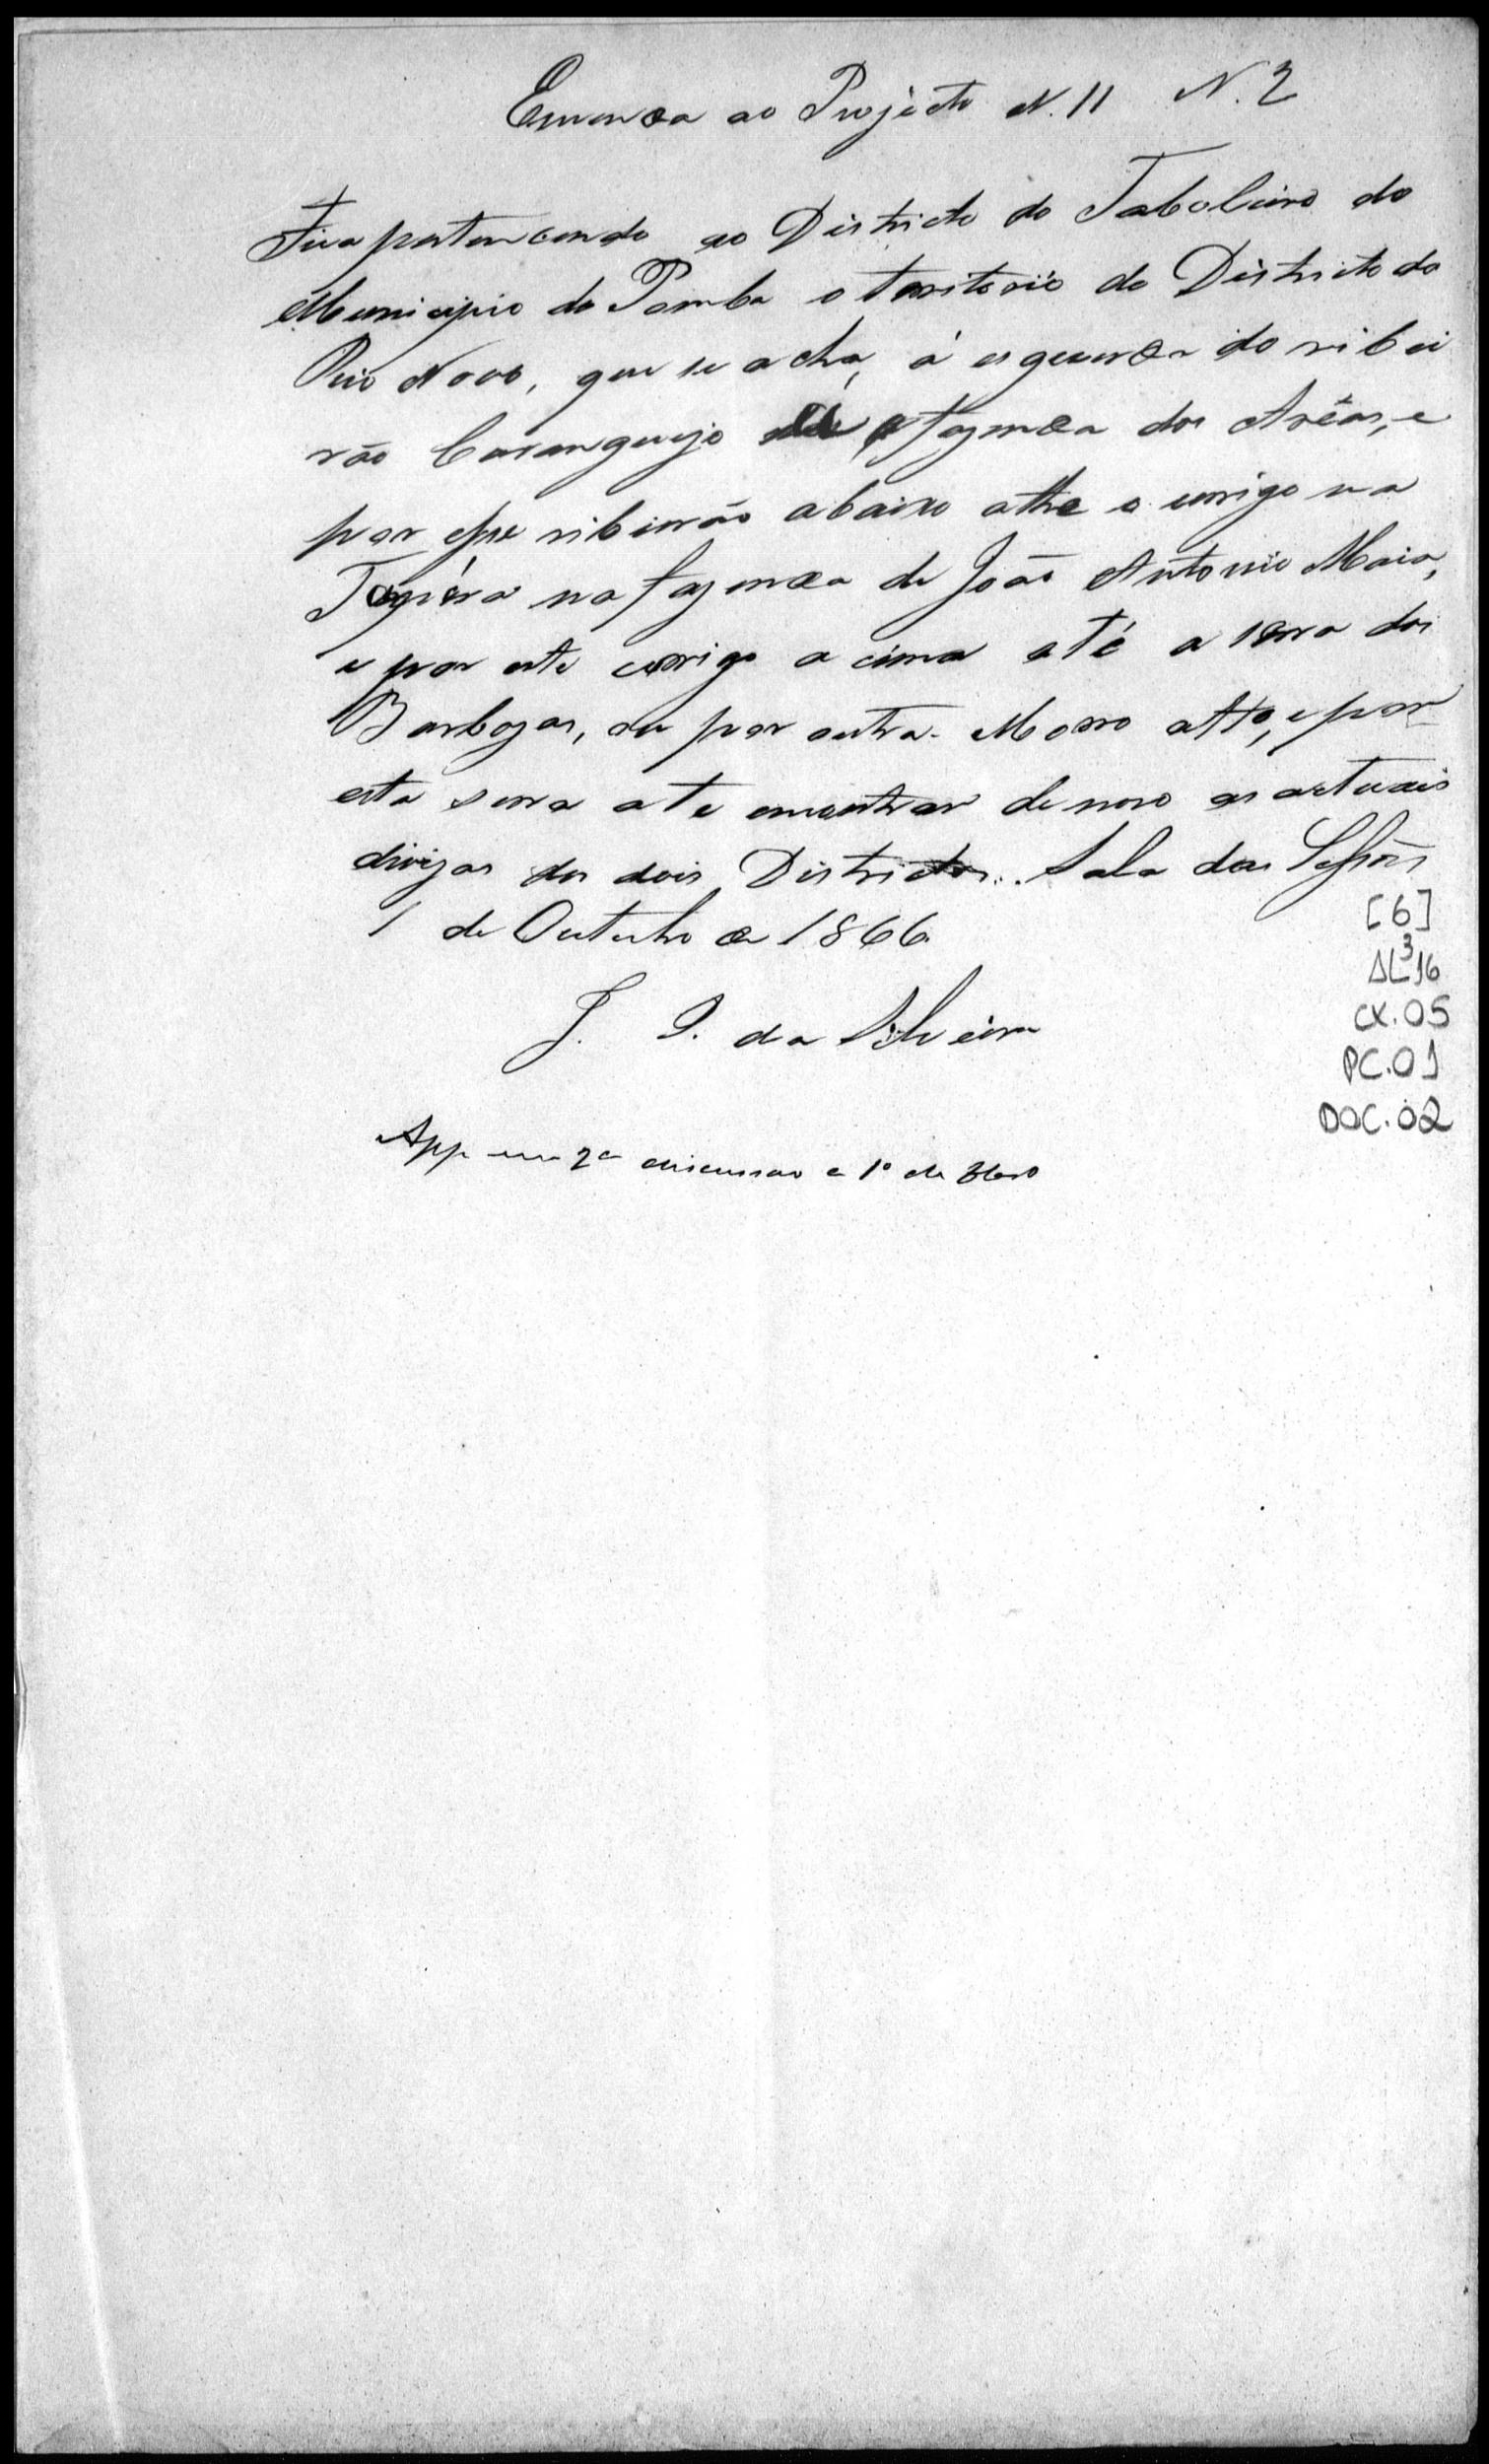 Emenda ao Projecto N. 11 N. 2
Fica pertencendo ao Districto do Taboleiro do
Municipio do Pomba o territorio do Districto do
Rio Novo, que se acha á esquerda do ribei
rão Caranguejo a fazenda dos Arêas, e
por esse ribeirão abaixo athe o corrigo na
na fazenda de João Antonio Maia,
e por este corrigo a cima até a serra dos
Barbozas, ou por outra Morro alto, e por
esta serra ate encontrar de novo as actuais
divizas dos dois Districtos. Sala das Sessões
1 de Outubro de 1866
J. I. da Silveira
App em 2ª discussao a 1º de 8bro
[6]
AL 3 16
CX. 05
PC. 01
DOC. 02